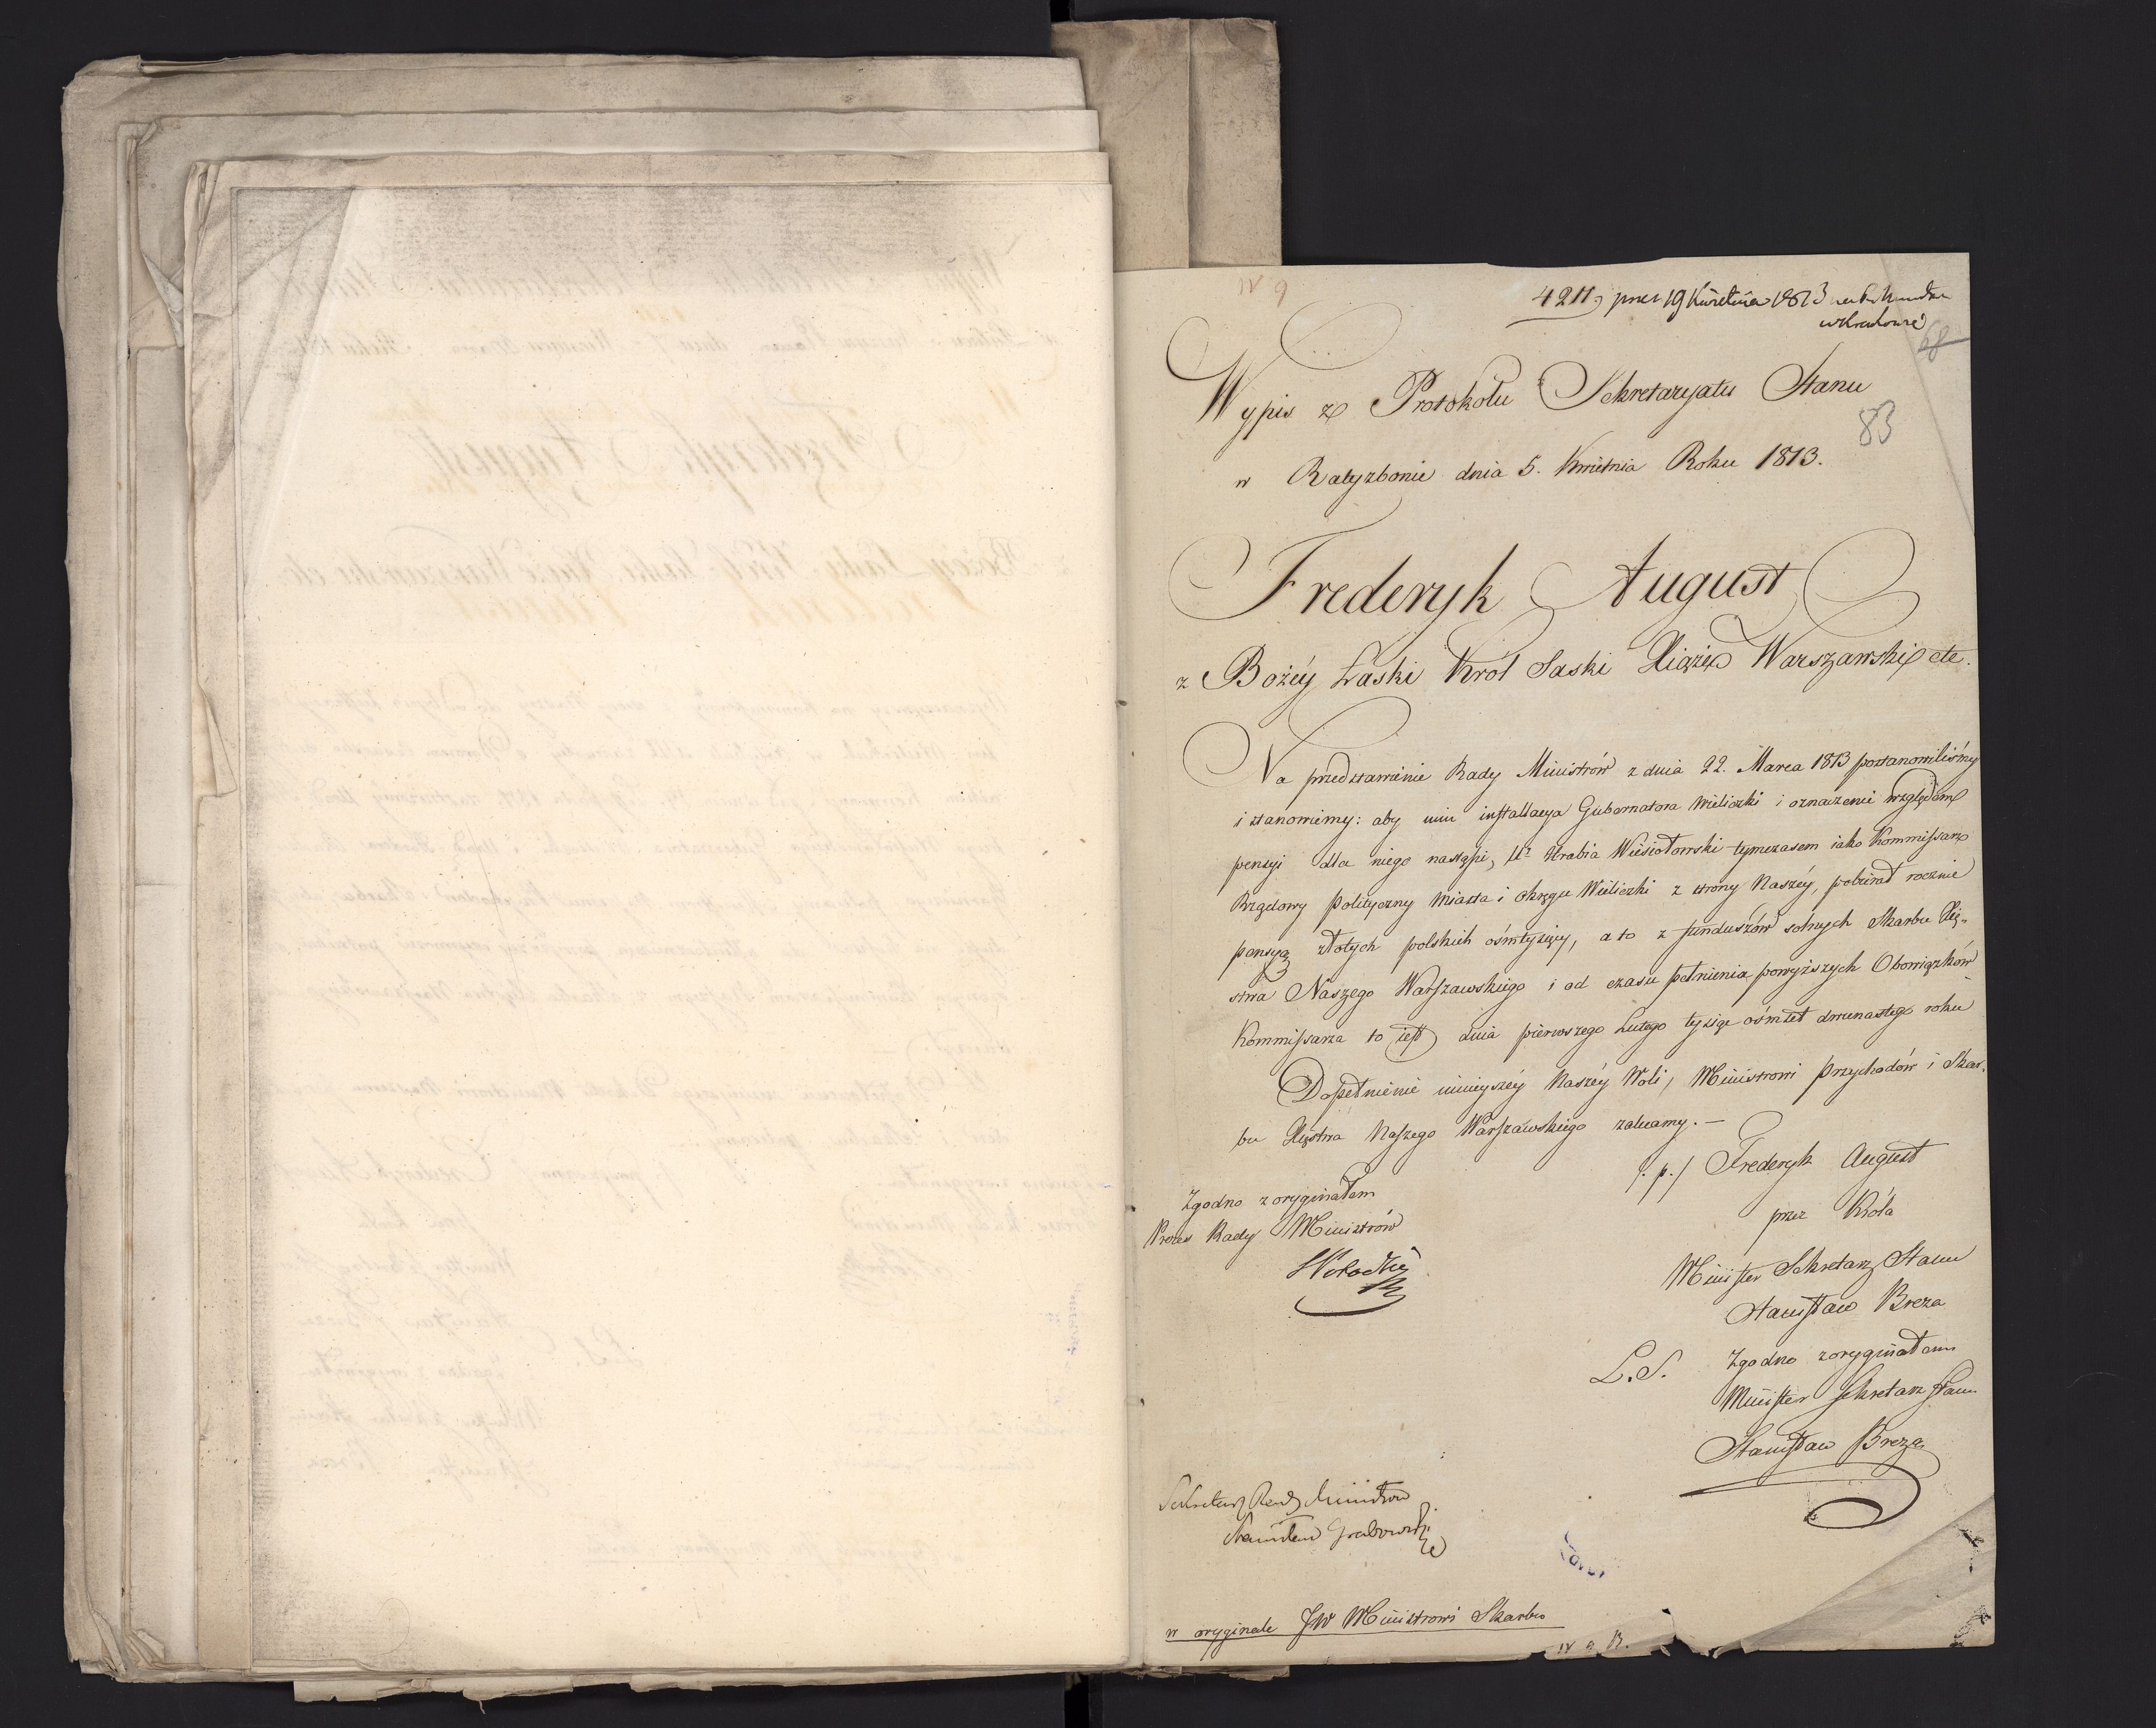 IV 9
4211, pres 19 Kwietnia 1813
w Krakowie
68
Wypis z Protokołu Sekretaryatu Stanu
83
w Ratyzbonie dnia 5. Kwietnia Roku 1813.
Frederyk August
z Bożéy Łaski Król Saski Xiąże Warszawski etc.
Na przedstawienie Rady Ministrów z dnia 22. Marca 1813 postanowiliśmy
i stanowiemy: aby nim installacya Gubernatora Wieliczki i oznaczenie względem
pensyi dla niego nastąpi, Ur Hrabia Wiesiołowski tymczasem iako Kommissarz
Rządowy polityczny Miasta i okręgu Wieliczki z strony Naszéy, pobierał rocznie
pensyą złotych polskich ośmtysięcy, a to z funduszów solnych Skarbu Xię„
stwa Naszego Warszawskiego i od czasu pełnienia powyższych Obowiązków
Kommissarza to iest dnia pierwszego Lutego tysiąc ośmset dwunastego roku
Dopełnienie ninieyszéy Naszéy Woli, Ministrowi Przychodów i Skar„
bu Xięstwa Naszego Warszawskiego zalecamy. —
/:p:/ Frederyk August
przez Króla
Minister Sekretarz Stanu
Stanisław Breza
Zgodno z oryginałem
Prezes Rady Ministrów
L.S.
Zgodno z oryginałem
Minister Sekretarz Stanu
Stanisław Breza
Sekretarz Rady Ministrów
Stanisław Grabowski
w oryginale JW Ministrowi Skarbu